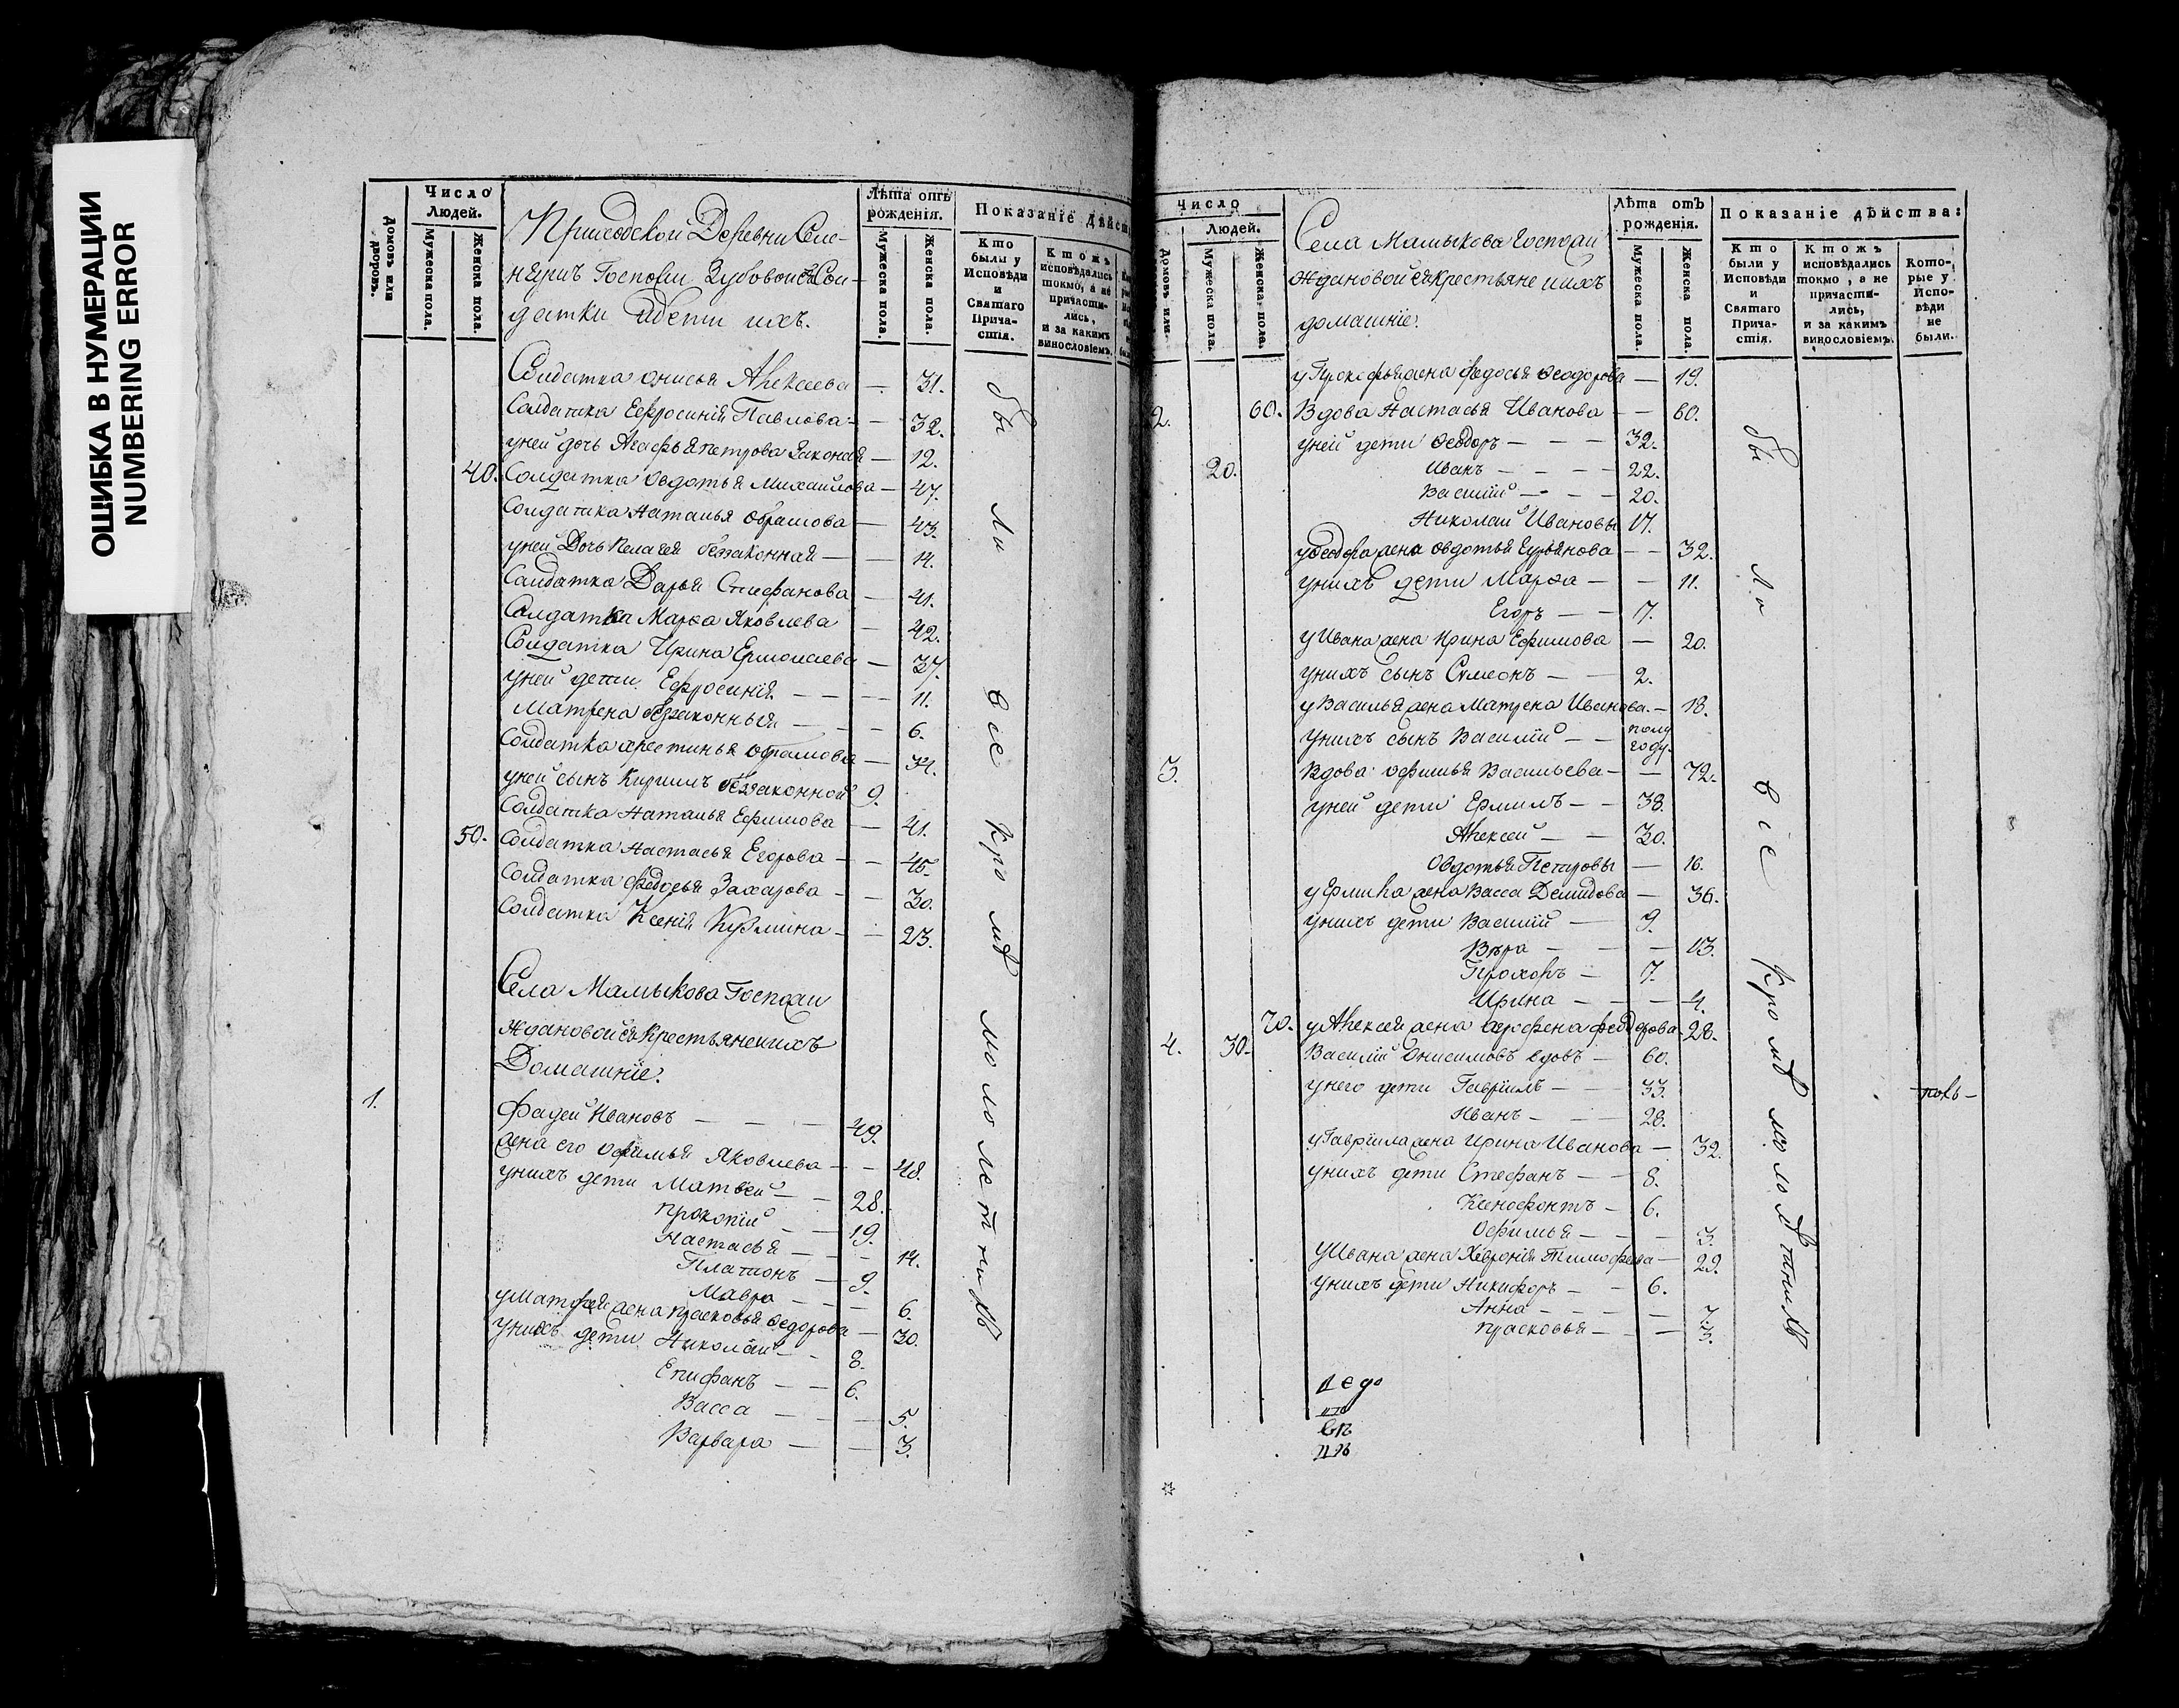 ОШИБКА В НУМЕРАЦИИ
NUMBERING ERROR
Домовъ или дворовъ.
Число Людей.
Мужеска пола.
Женска пола.
Приходской Деревни
Госпожи Зубовой Сол-
датки идети ихъ.
Лѣта отъ рожденія.
Мужеска пола.
Женска пола.
Показаніе дѣйст
Кто были у Исповѣди и Святаго Прича-стія.
Ктожъ исповѣдались токмо, а не причасти-лись, и за какимъ винословіемъ.
Солдатка Онисья Алексеева — 31.
Солдатка Ефросинія Павлова — 32.
уней дочь Агафья петрова — 12.
40. Солдатка Овдотья Михайлова — 47.
Солдатка Наталья Абрамова — 43.
уней Дочь Пелагея беззаконная — 14.
Солдатка Дарья Стефанова — 41.
Солдатка Марѳа Яковлева — 42.
Солдатка Ирина Ермолаева — 37.
уней дети Ефросинія — — — 11.
Матрена беззаконныя — — — 6.
Солдатка христинья — 34.
уней сынъ Кирилъ беззаконной 9.
Солдатка Наталья Ефимова — 41.
50. Солдатка Настасья Егорова — — 45.
Солдатка Федосья Захарова — — 30.
Солдатка Ксенія Кузмина — — 23.
Села Мамыкова Госпожи
Ждановой Крестьяне ихъ
Домашніе.
1. Фадей Ивановъ — — — 49.
жена его Офимья Яковлева — — 48.
унихъ дети Матвей — — 28.
прокопій — — 19.
Настасья — — — 14.
Платонъ — 9.
Мавра — — — 6.
уМатфея жена прасковья Федорова — 30.
унихъ дети Николай — — 8.
Епифанъ — — 6.
Васса — — — 5.
Варвара — — 3.
бы ли все кромѣ мололетнихъ
Число Людей.
Домовъ или
Мужеска пола.
Женска пола.
Села Мамыкова Госпожи
Ждановой Крестьяне иихъ
домашніе.
Лѣта отъ рожденія.
Мужеска пола.
Женска пола.
Показаніе дѣйства:
Кто были у Исповѣди и Святаго Прича-стія.
Ктожъ исповѣдались токмо, а не причасти-лись, и за какимъ винословіемъ.
Кото-рые у Испо-вѣди не были.
уПрокофья жена федосья Феодорова — 19.
2. 60. Вдова Настасья Иванова — — 60.
уней дети Феодоръ — — — 32.
20. Иванъ — — — — 22.
Василій — — — 20.
Николай Ивановы 17.
уФеодора жена Овдотья — — 32.
унихъ дети Марѳа — — 11.
Егоръ — — 7.
уИвана жена Ирина Ефимова — 20.
унихъ сынъ Симеонъ — — 2.
уВасилья жена Матрена Иванова — 18.
унихъ сынъ Василій — — полугоду.
3. Вдова Офимья Васильева — — 72.
уней дети Ермилъ — — 38.
Алексей — — 30.
Овдотья Петровы — 16.
уЕрмила жена Васса Демидова — 36.
унихъ дети Василій — 9.
Вѣра — — — 13.
Прохоръ — 7.
Ирина — — — 4.
70. уАлексея жена Феодорова 28.
4. 30. Василій Онисимовъ вдовъ — 60.
унего дети Гавріилъ — — 33.
Иванъ — — 28.
уГавріила жена Ирина Иванова — 32.
унихъ дети Стефанъ — — 8.
Ксенофонтъ — 6.
Офимья — — — 3.
уИвана жена Хевронія Тимофеева — 29.
унихъ дети Никифоръ — — 6.
Анна — — — — 7.
прасковья — — — 3.
бы ли все кромѣ мололѣтнихъ